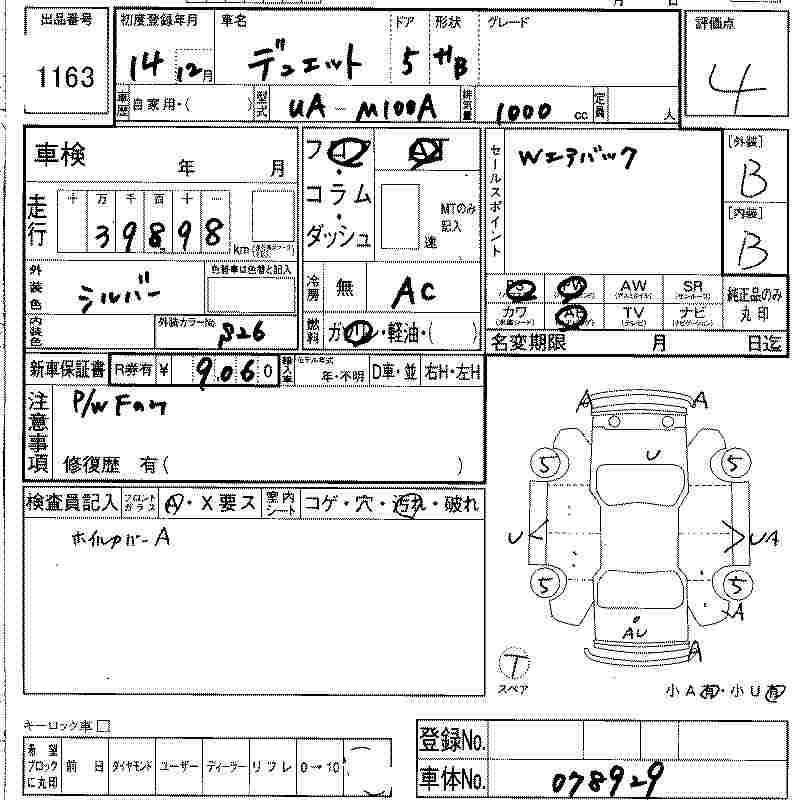 出品番号
1163
初度登録年月 車名 ドア 形状 グレード
14 12月 デュエット 5 HB
車歴 自家用・( ) 型式 UA-M100A 排気量 1000 cc 定員 人
評価点
4
車検 年 月
走行 十 万 千 百 十 一
39898 km
外装色 シルバー 色替車は色替と記入
内装色 外装カラーNo. S26
フロア・コラム・ダッシュ
AT
MTのみ記入
速
冷房 無 AC
燃料 ガソリン・軽油・( )
セールスポイント Wエアバック
[外装]
B
[内装]
B
PS PW AW SR
カワ AB TV ナビ
純正品のみ丸印
名変期限 月 日迄
新車保証書 R券有 ¥ 9060 輸入車 モデル年式 年・不明 D車・並 右H・左H
注意事項 P/W Fのみ
修復歴 有( )
検査員記入 フロントガラス A・X要ス 室内シート コゲ・穴・汚れ・破れ
ホイルカバーA
A A
U
5 5
U UA
5 5
A
AU
A
T
スペア
小A有・小U有
キーロック車 □
希望ブロックに丸印 前日 ダイヤモンド ユーザー ディーラー リフレ 0→10 ( )
登録No.
車体No. 078929